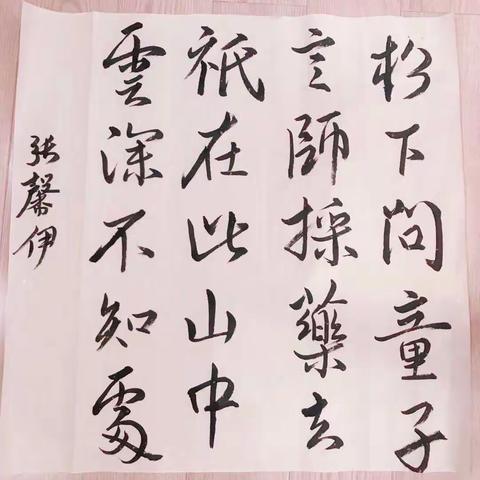 松下问童子
言師採藥去
祇在此山中
雲深不知處
张馨伊